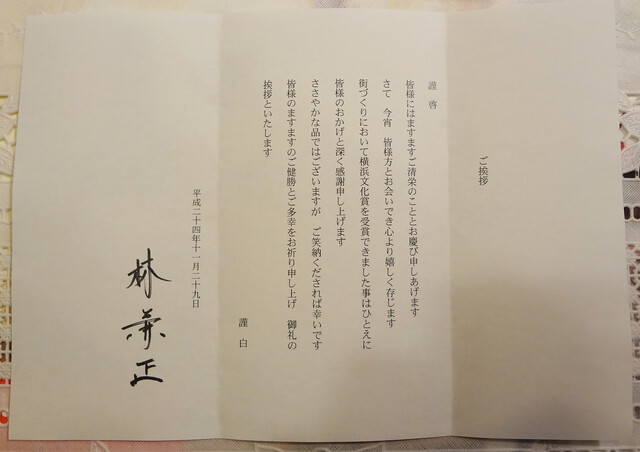 ご挨拶
謹啓
皆様にはますますご清栄のこととお慶び申しあげます
さて　今宵　皆様方とお会いでき心より嬉しく存じます
街づくりにおいて横浜文化賞を受賞できました事はひとえに
皆様のおかげと深く感謝申し上げます
ささやかな品ではございますが　ご笑納くだされば幸いです
皆様のますますのご健勝とご多幸をお祈り申し上げ　御礼の
挨拶といたします
謹白
平成二十四年十一月二十九日
林兼正